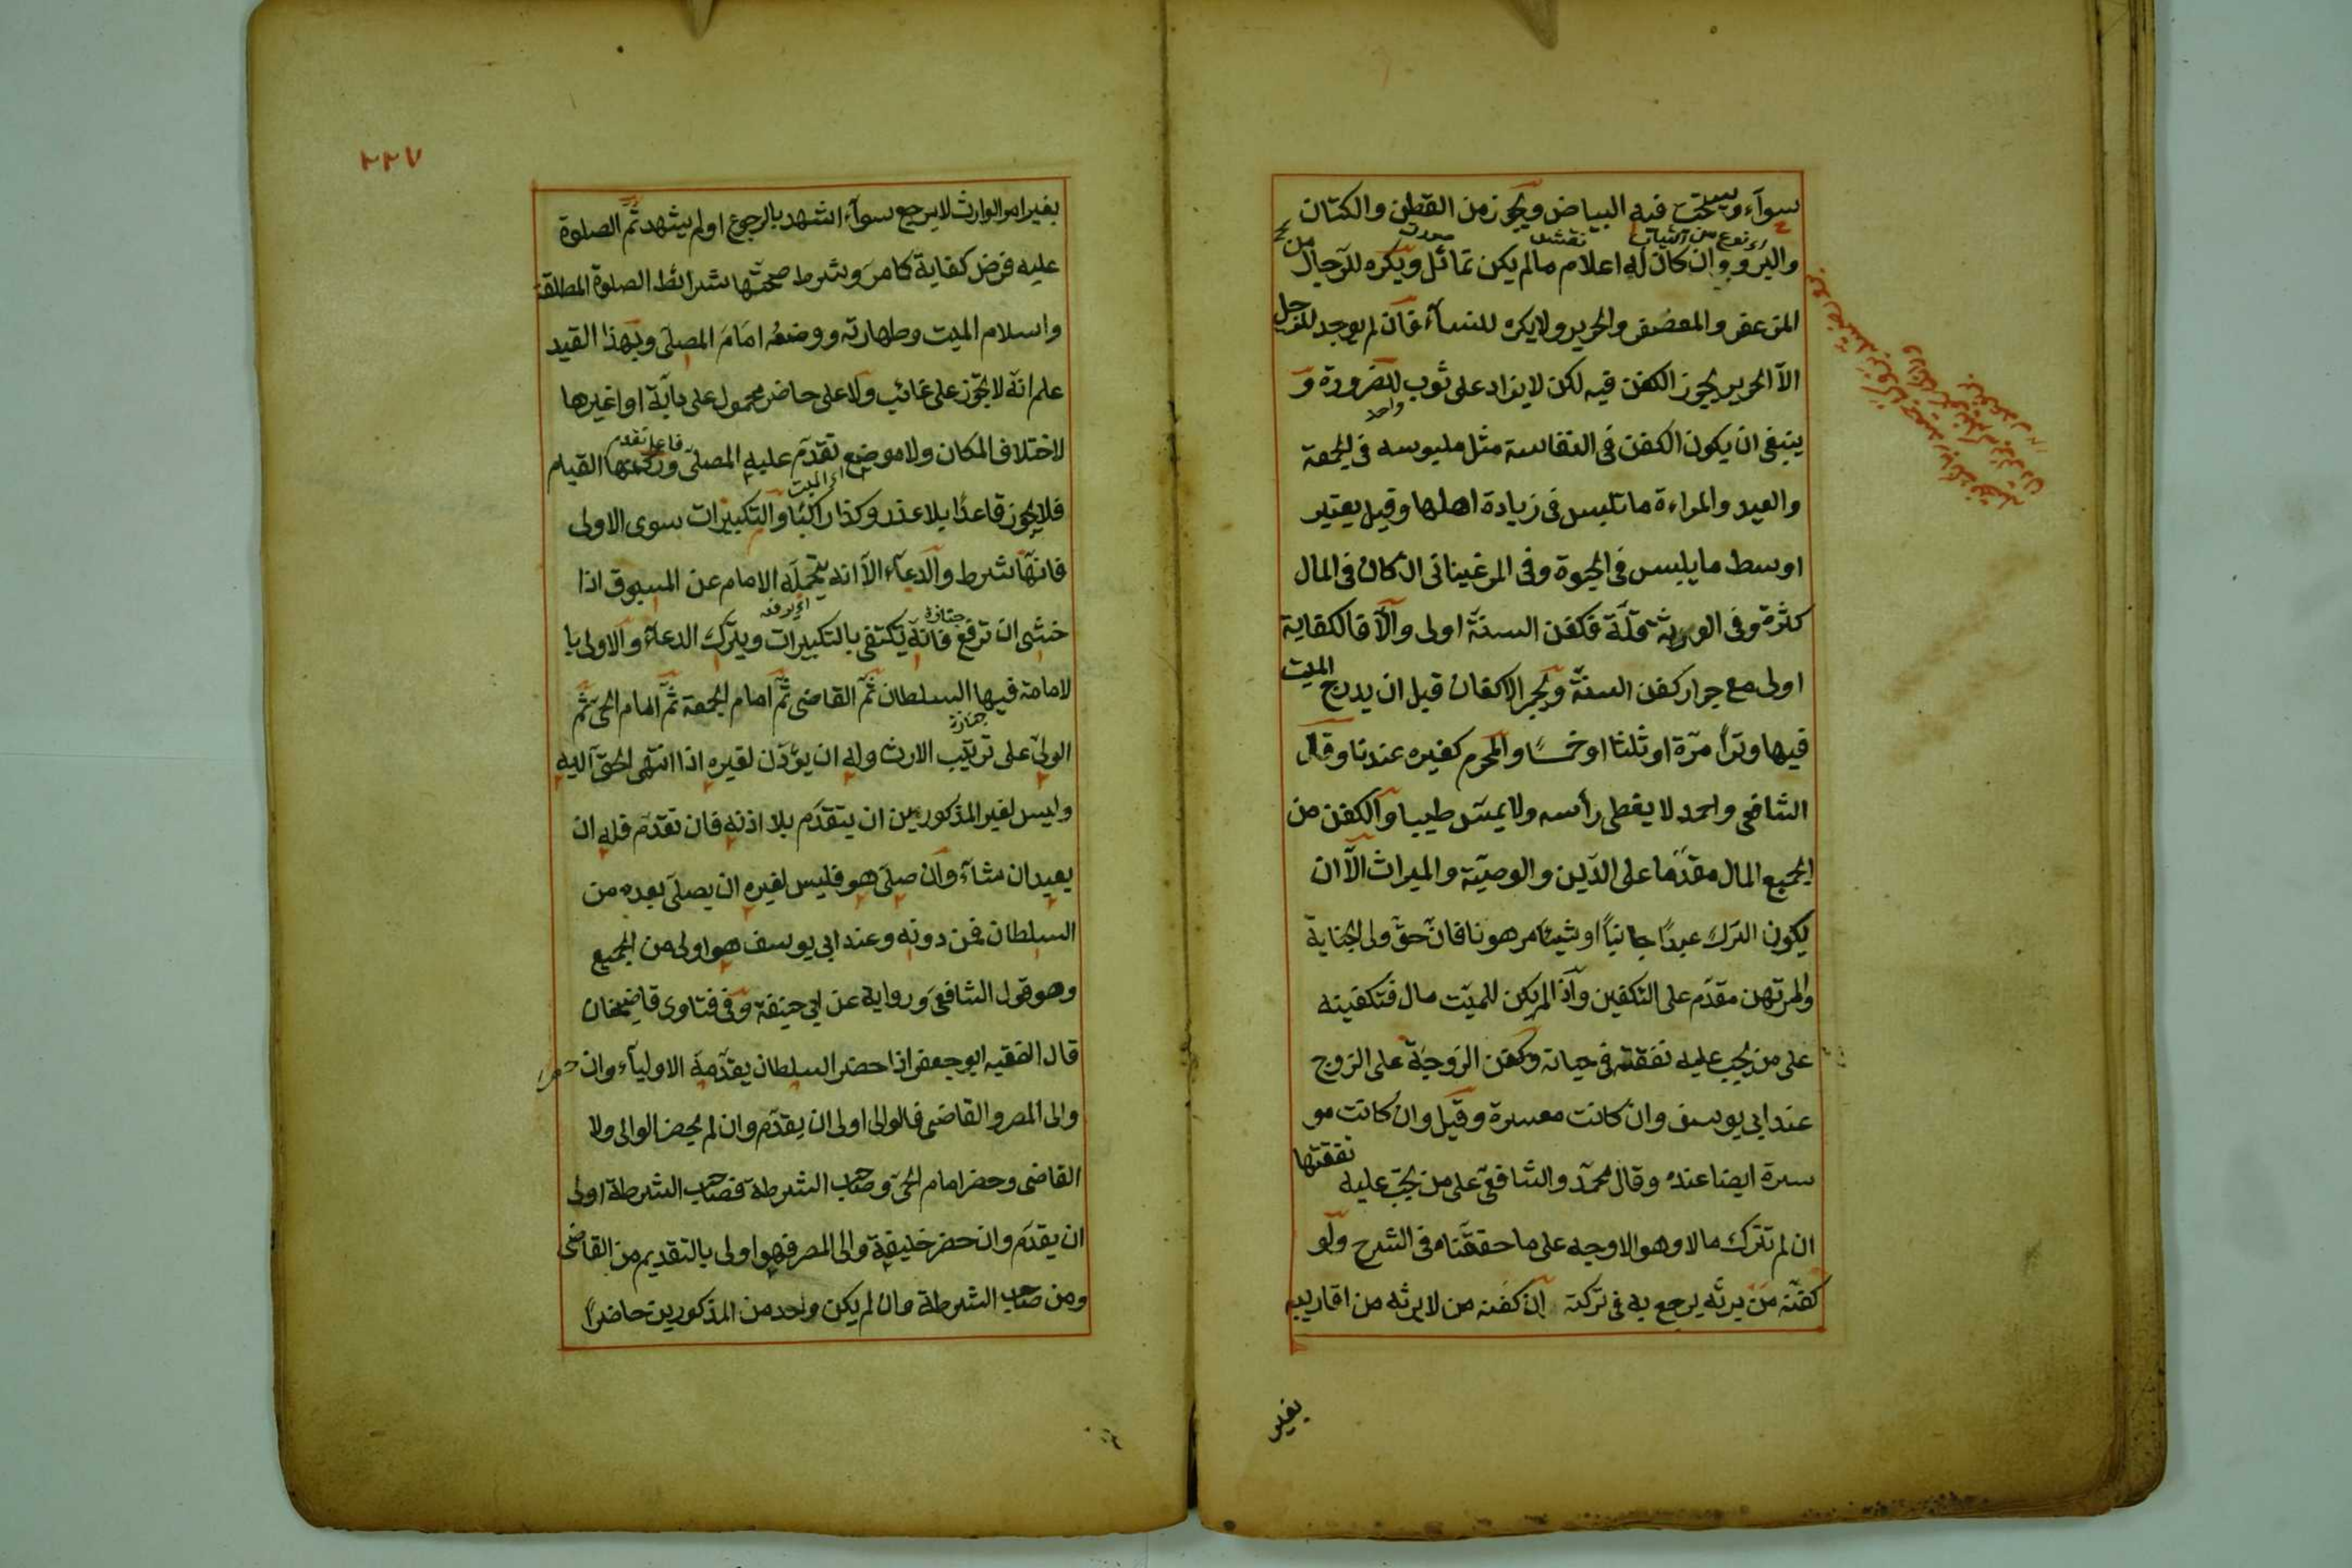 سوآء ويستحب فيه البياض ويجوز من القطن والكتان
والبرود وان كان له اعلام مالم يكن تماثل ويكره للرجال من
المزعفر والمعصفر والحرير ولا يكره للنسآء فان لم يوجد للرجل
الآ الحرير يجوز الكفن فيه لكن لا يزاد على ثوب للضرورة و
واحد
ينبغى ان يكون الكفن فى النفاسة مثل ملبوسه فى الجمعة
والعيد والمراءة ما تلبس فى زيادة اهلها وقيل يعتبر
اوسط ما يلبس فى الحيوة وفى المرغينانى ان كان فى المال
كثرة وفى الورثة قلّة فكفن السنة اولى والآ فالكفاية
اولى مع جواز كفن السنة ويجمر الاكفان قبل ان يدرج الميت
فيها وترا مرّة او ثلثا او خمسًا والمحرم كغيره عندنا وقال
الشافعى واحمد لا يغطى رأسه ولا يمس طيبا والكفن من
الجميع المال مقدّما على الدّين والوصيّة والميراث الآ ان
يكون الترك عبدًا جانياً او شيئا مرهونا فانّ حقّ ولى الجناية
والمرتهن مقدّم على التكفين وآذا لم يكن للميّت مال فتكفينه
على من يجب عليه نفقته فى حياته وكفن الزوجة على الزوج
عند ابى يوسف وان كانت معسرة وقيل وان كانت مو
سرة ايضا عنده وقال محمّد والشافعى على من يجب عليه نفقتها
ان لم تترك مالا وهو الاوجه على ما حققناه فى الشرح ولو
كفنه من يرثه يرجع به فى تركته ان كفنه من لا يرثه من اقاربه
بغير
٢٢٧
بغير امر الوارث لا يرجع سوآء اشهد بالرجوع او لم يشهد ثمّ الصلوة
عليه فرض كفاية كما مرّ وشرط صحّتها شرائط الصلوة المطلقة
واسلام الميت وطهارته ووضعه امام المصلى وبهذا القيد
علم انّه لا يجوز على غائب ولا على حاضر محمول على دابّة او اغيرها
فاعل تقدم
لاختلاف المكان ولا موضع تقدّم عليه المصلى وركنها القيام
اى الميت
فلا يجوز قاعدًا بلا عذر وكذا راكبًا والتكبيرات سوى الاولى
فانهآ شرط والدعآء الآ انه يتحمله الامام عن المسبوق اذا
جنازة
خشى ان ترفع فانه يكتفى بالتكبيرات ويترك الدعآء والاولى با
لامامة فيها السلطان ثمّ القاضى ثمّ امام الجمعة ثمّ امام الحى ثمّ
جنازة
الولى على ترتيب الارث وله ان يؤذن لغيره اذا انتهى الحق اليه
وليس لغير المذكورين ان يتقدّم بلا اذنه فان تقدّم فله ان
يعيد ان شآء وان صلى هو فليس لغيره ان يصلى بعده من
السلطان فمن دونه وعند ابى يوسف هو اولى من الجميع
وهو قول الشافعى ورواية عن ابى حنيفة وفى فتاوى قاضيخان
قال الفقيه ابو جعفر اذا حضر السلطان يقدّمه الاوليآء وان حضر
والى المصر والقاضى فالوالى اولى ان يقدّم وان لم يحضر الوالى ولا
القاضى وحضر امام الحى وصاحب الشرطة فصاحب الشرطة اولى
ان يقدّم وان حضر خليفة والى المصر فهو اولى بالتقديم من القاضى
ومن صاحب الشرطة وان لم يكن واحد من المذكورين حاضرًا